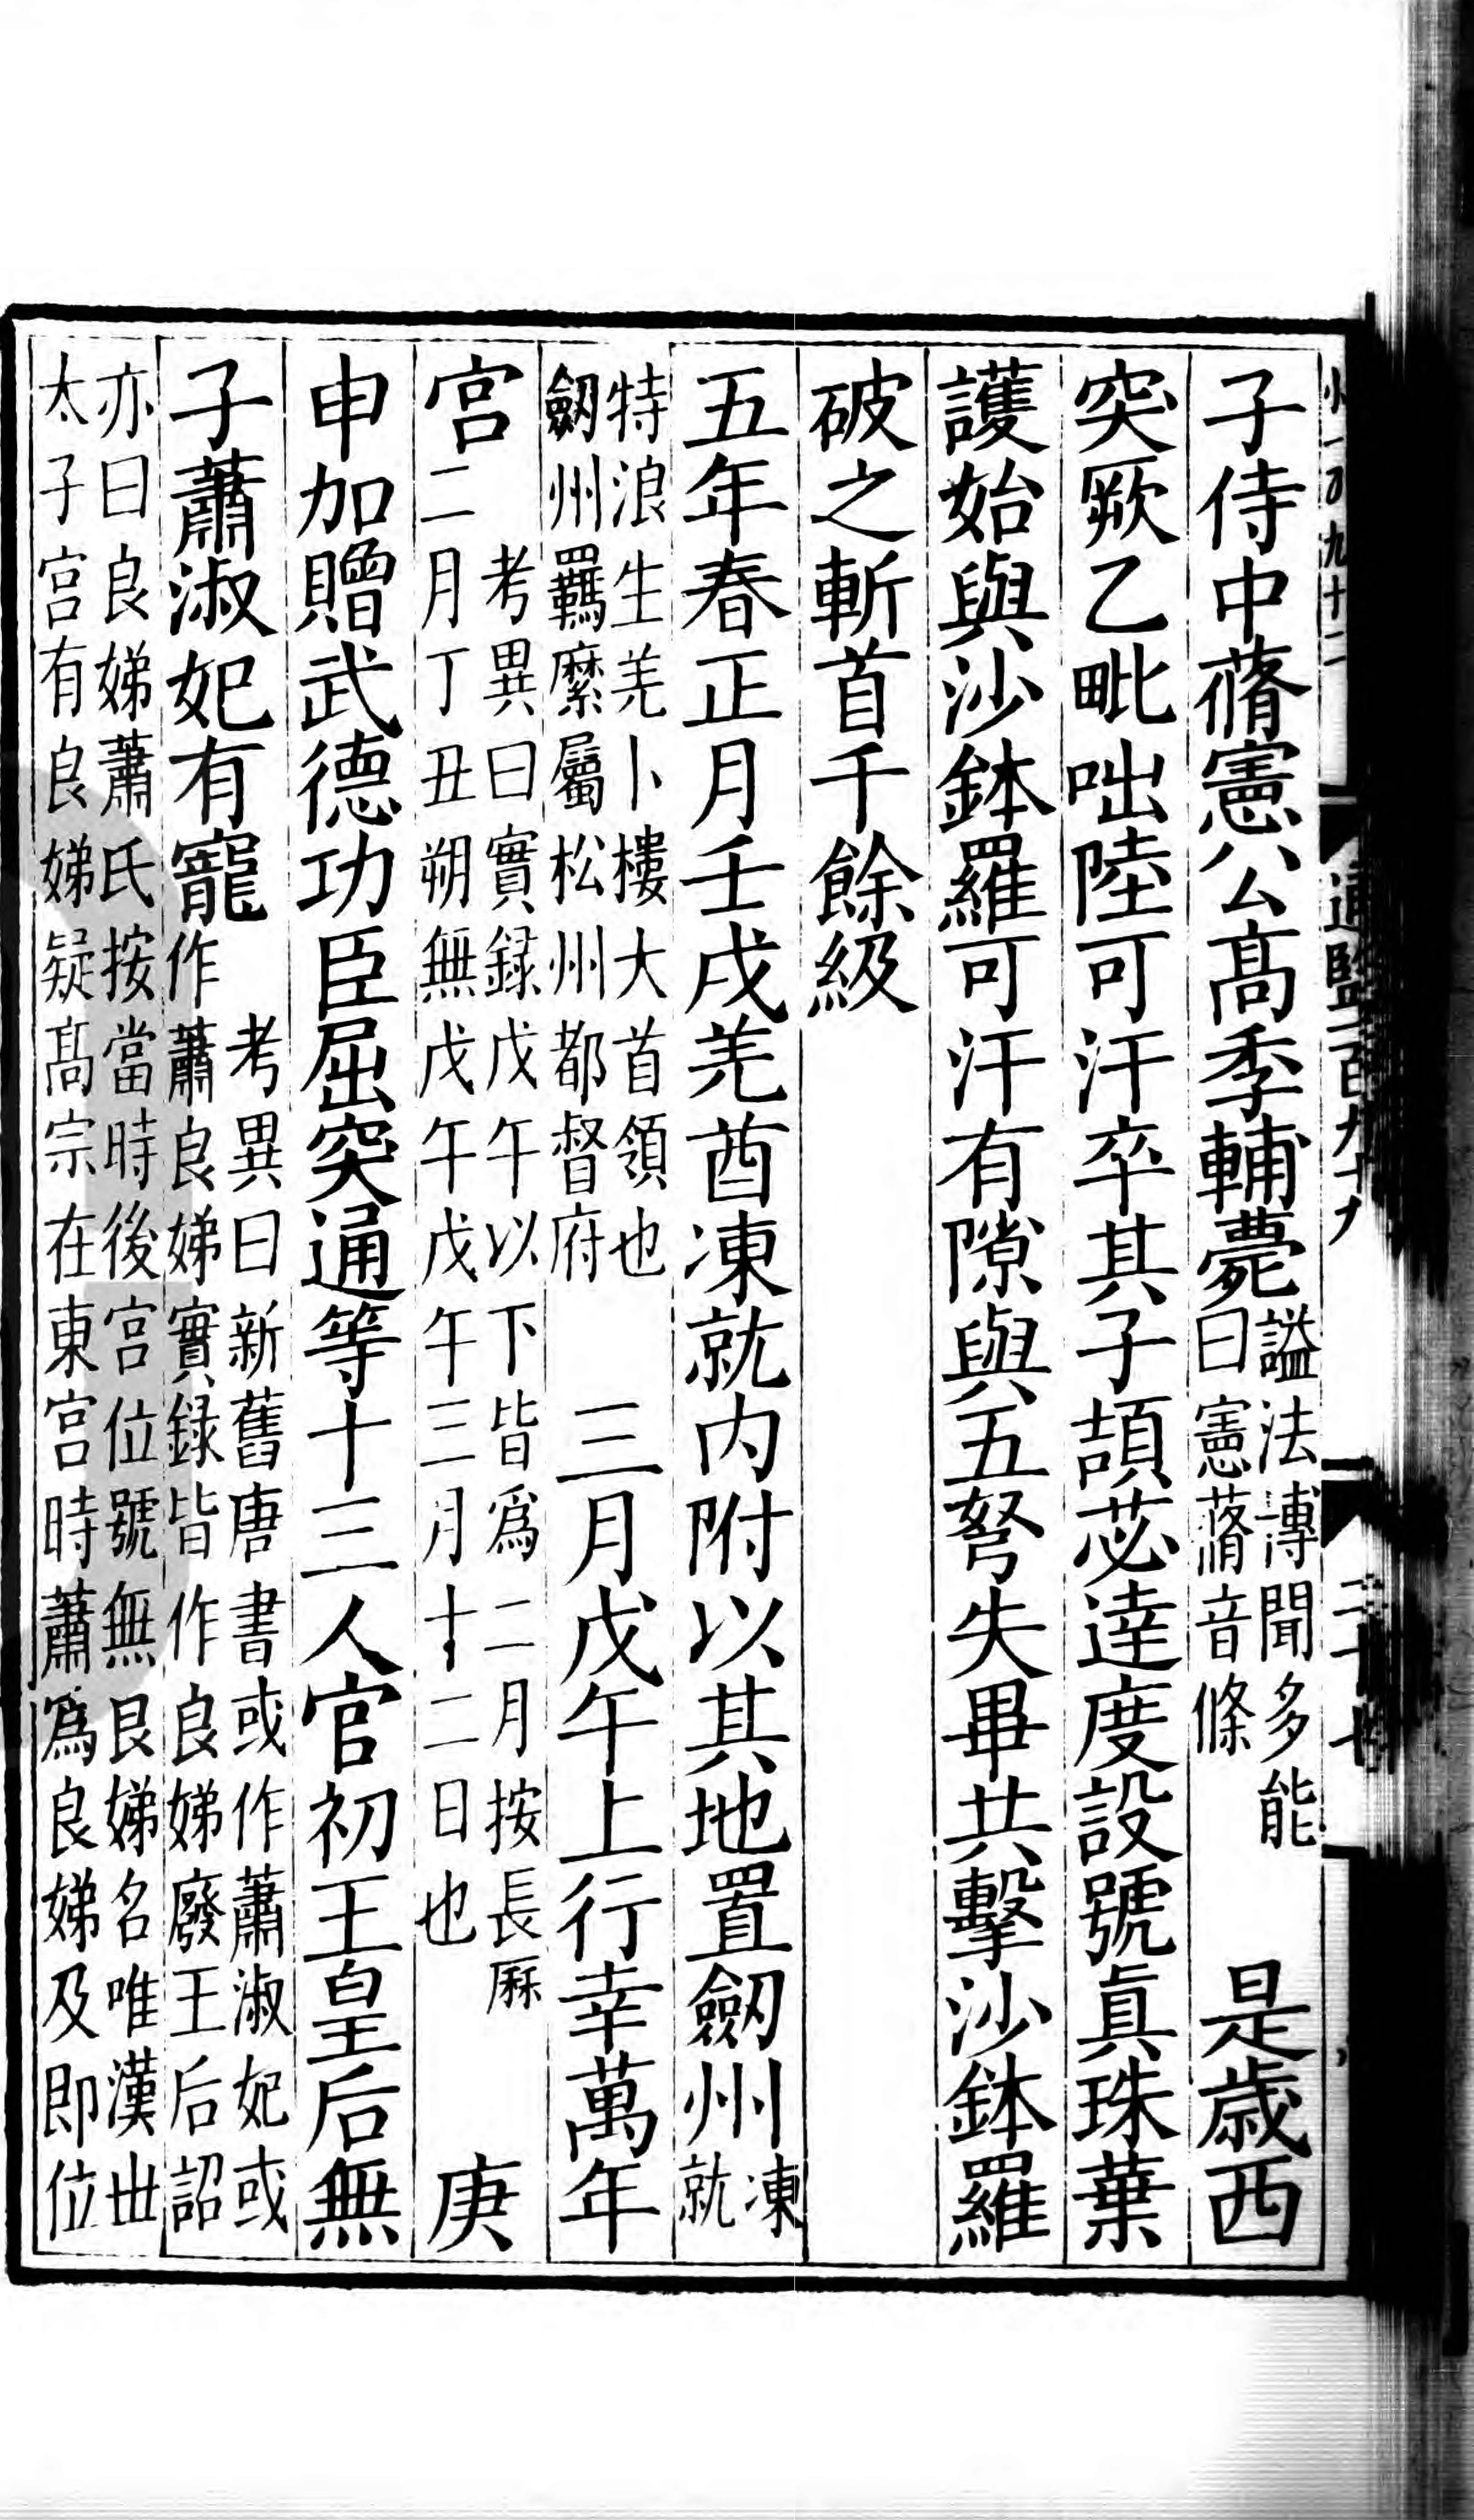 子侍中蓨憲公髙季輔薨謚法博聞多能曰憲蓨音條　是歳西
突厥乙毗咄陸可汗卒其子頡苾達度設號真珠葉
護始與沙鉢羅可汗有隙與五弩失畢共擊沙鉢羅
破之斬首千餘級
五年春正月壬戌羌酋凍就内附以其地置劒州凍就
特浪生羌卜樓大首領也劒州羈縻屬松州都督府　三月戊午上行幸萬年
宮考異曰實録戊午以下皆為二月按長厤二月丁丑朔無戊午戊午三月十二日也　庚
申加贈武德功臣屈突通等十三人官初王皇后無
子蕭淑妃有寵考異曰新舊唐書或作蕭淑妃或作蕭良娣實録皆作良娣廢王后詔
亦曰良娣蕭氏按當時後宮位號無良娣名唯漢世太子宮有良娣疑髙宗在東宮時蕭為良娣及即位
通鑑一百九十九
二十七